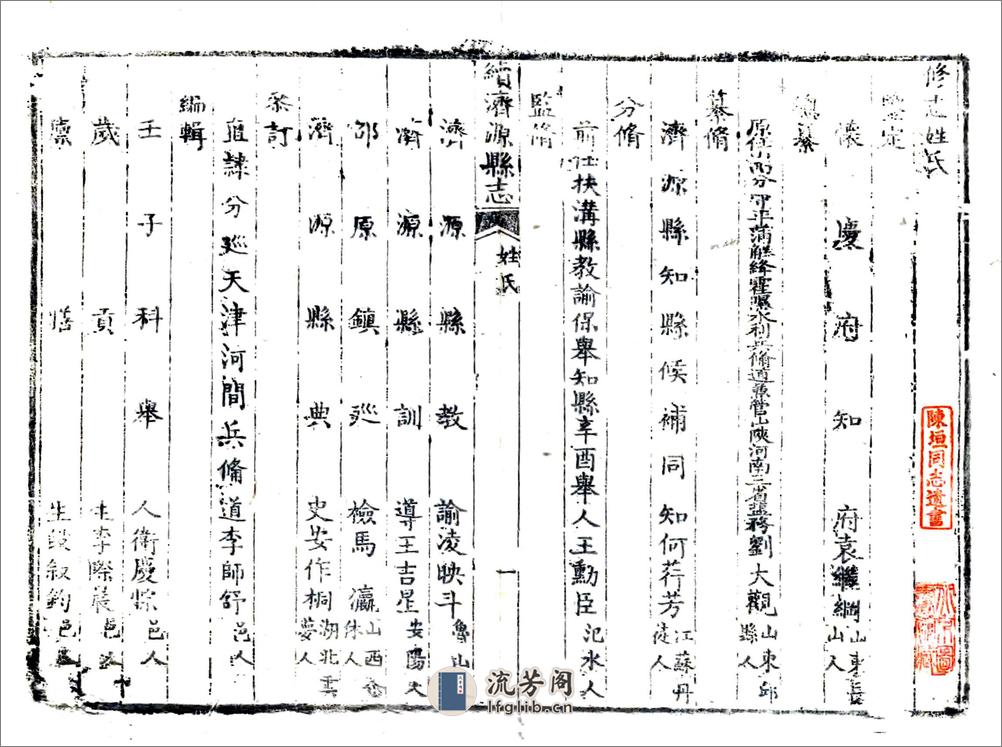 修志姓氏
鑒定
懷慶府知府袁繼綱山東長山人
總纂
原任山西分守平蒲解絳霍隰水利兵備道兼管山陝河南三省鹽務劉大觀山東邱縣人
纂脩
濟源縣知縣候補同知何荇芳江蘇丹徒人
分脩
前任扶溝縣教諭保舉知縣辛酉舉人王勳臣汜水人
監脩
續濟源縣志
姓氏
一
濟源縣教諭淩映斗魯山
濟源縣訓導王吉星安陽人
邵原鎮巡檢馬瀛山西人
濟源縣典史安作桐湖北雲夢人
叅訂
直隸分巡天津河間兵備道李師舒邑人
編輯
壬子科舉人衛慶悰邑人
歲貢生李際晨邑人
廩膳生段叙鈞邑
陳垣同志遺書
流芳阁
lfglib.cn